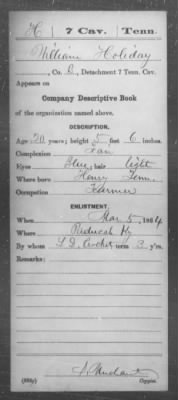 H | 7 Cav. | Tenn.
William Holiday
, Co. D, Detachment 7 Tenn. Cav.
Appears on
Company Descriptive Book
of the organization named above.
DESCRIPTION.
Age 20 years; height 5 feet 6 inches.
Complexion Fair
Eyes Blue; hair light
Where born Henry Tenn.
Occupation Farmer
ENLISTMENT.
When Mar 5, 1864.
Where Paducah Ky
By whom term 3 y'rs.
Remarks:
Copyist.